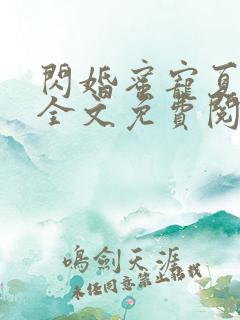 閃婚蜜寵夏
全文免費閱
鳴劍天涯
未經同意禁止轉載